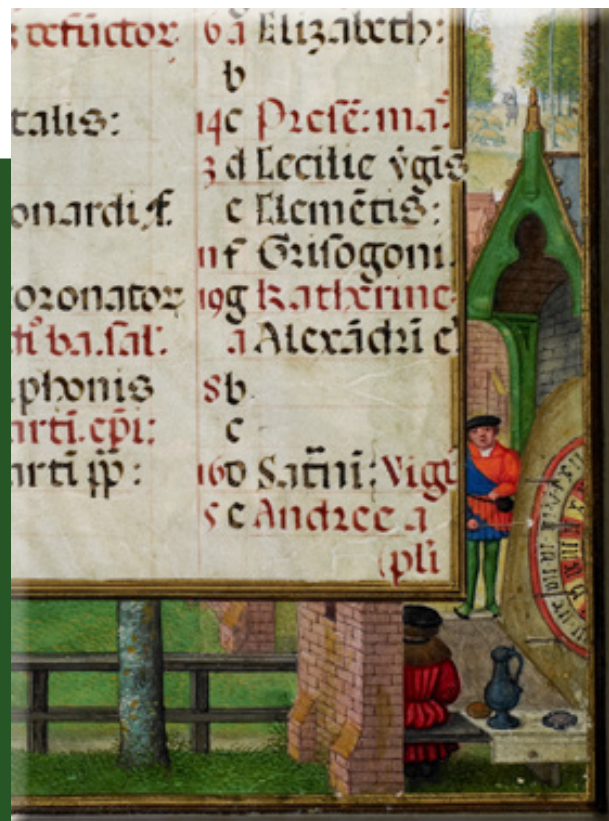 talis:
onardi .f.
oronator
ti ba.sal:
phonis
arti.epi:
arti pp:
6 a Elizabeth:
b
14 c Presē: ma:
3 d Cecilie vgīs
e Clemētis:
11 f Grisogoni.
19 g Katherine
a Alexādri e
8 b
c
16 d Satīni: Vigi
5 e Andree a
pli